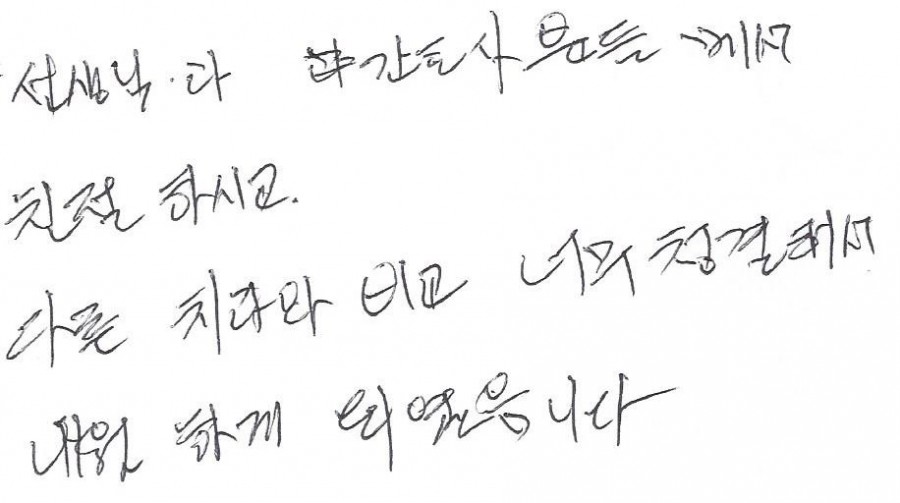 선생님·과 간호사 분들 께서
친절 하시고.
다른 치과와 비교 너무 청결해서
내원 하게 되었습니다